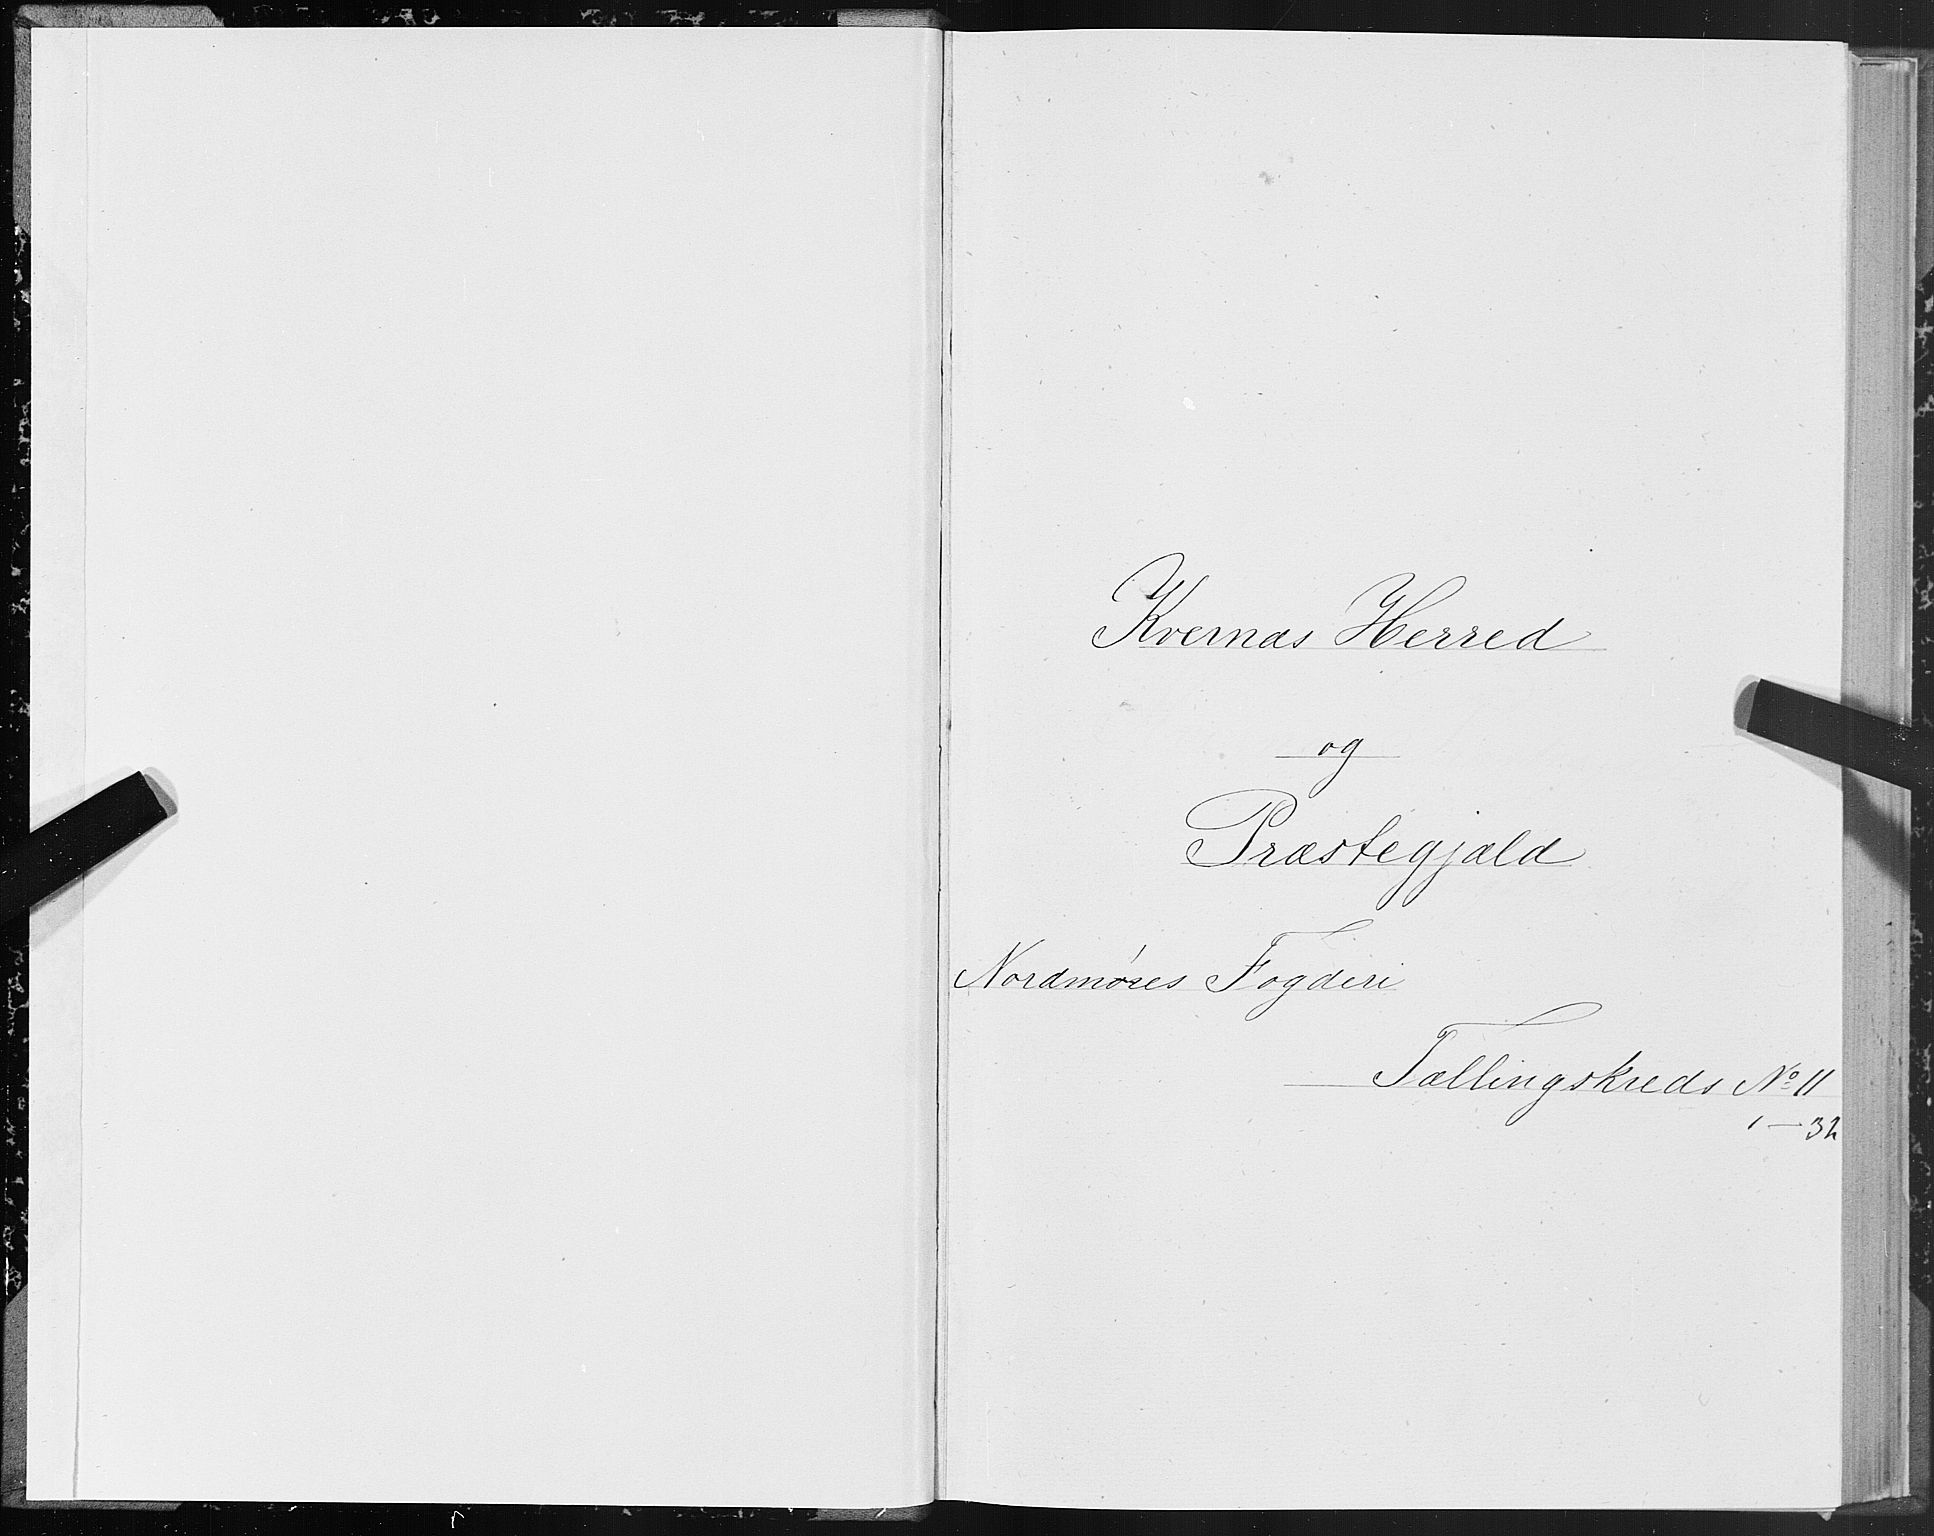 Kvernæs Herred
og
Præstegjæld
Nordmøres Fogderi
Tællingskreds No 11
1 — 32